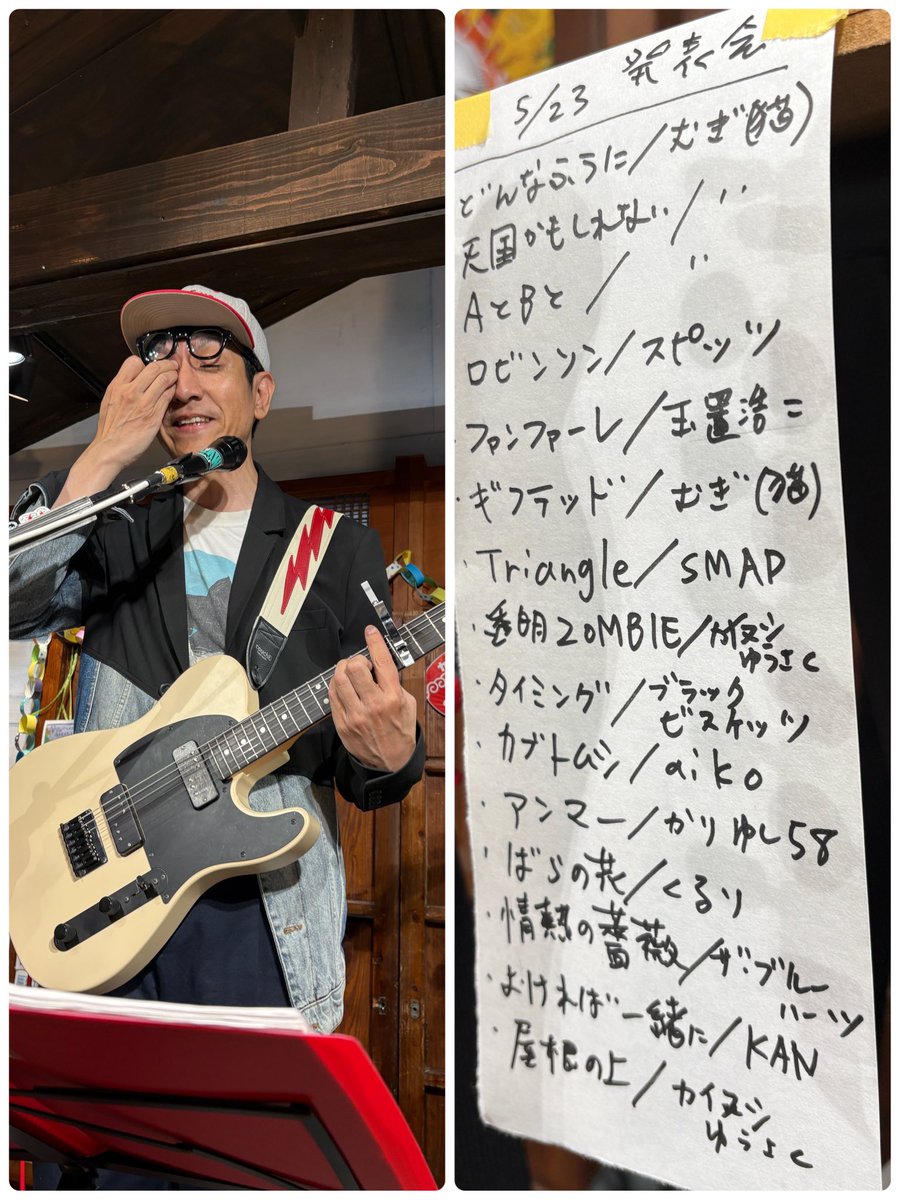 5/23 発表会
どんなふうに/むぎ(猫)
天国かもしれない/〃
AとBと/〃
ロビンソン/スピッツ
・ファンファーレ/玉置浩二
・ギフテッド/むぎ(猫)
・Triangle/SMAP
・透明ZOMBIE/カイヌシ
ゆうさく
・タイミング/ブラック
ビスケッツ
・カブトムシ/aiko
・アンマー/かりゆし58
・ばらの花/くるり
・情熱の薔薇/ザ・ブルー
ハーツ
・よければ一緒に/KAN
・屋根の上/カイヌシ
ゆうさく